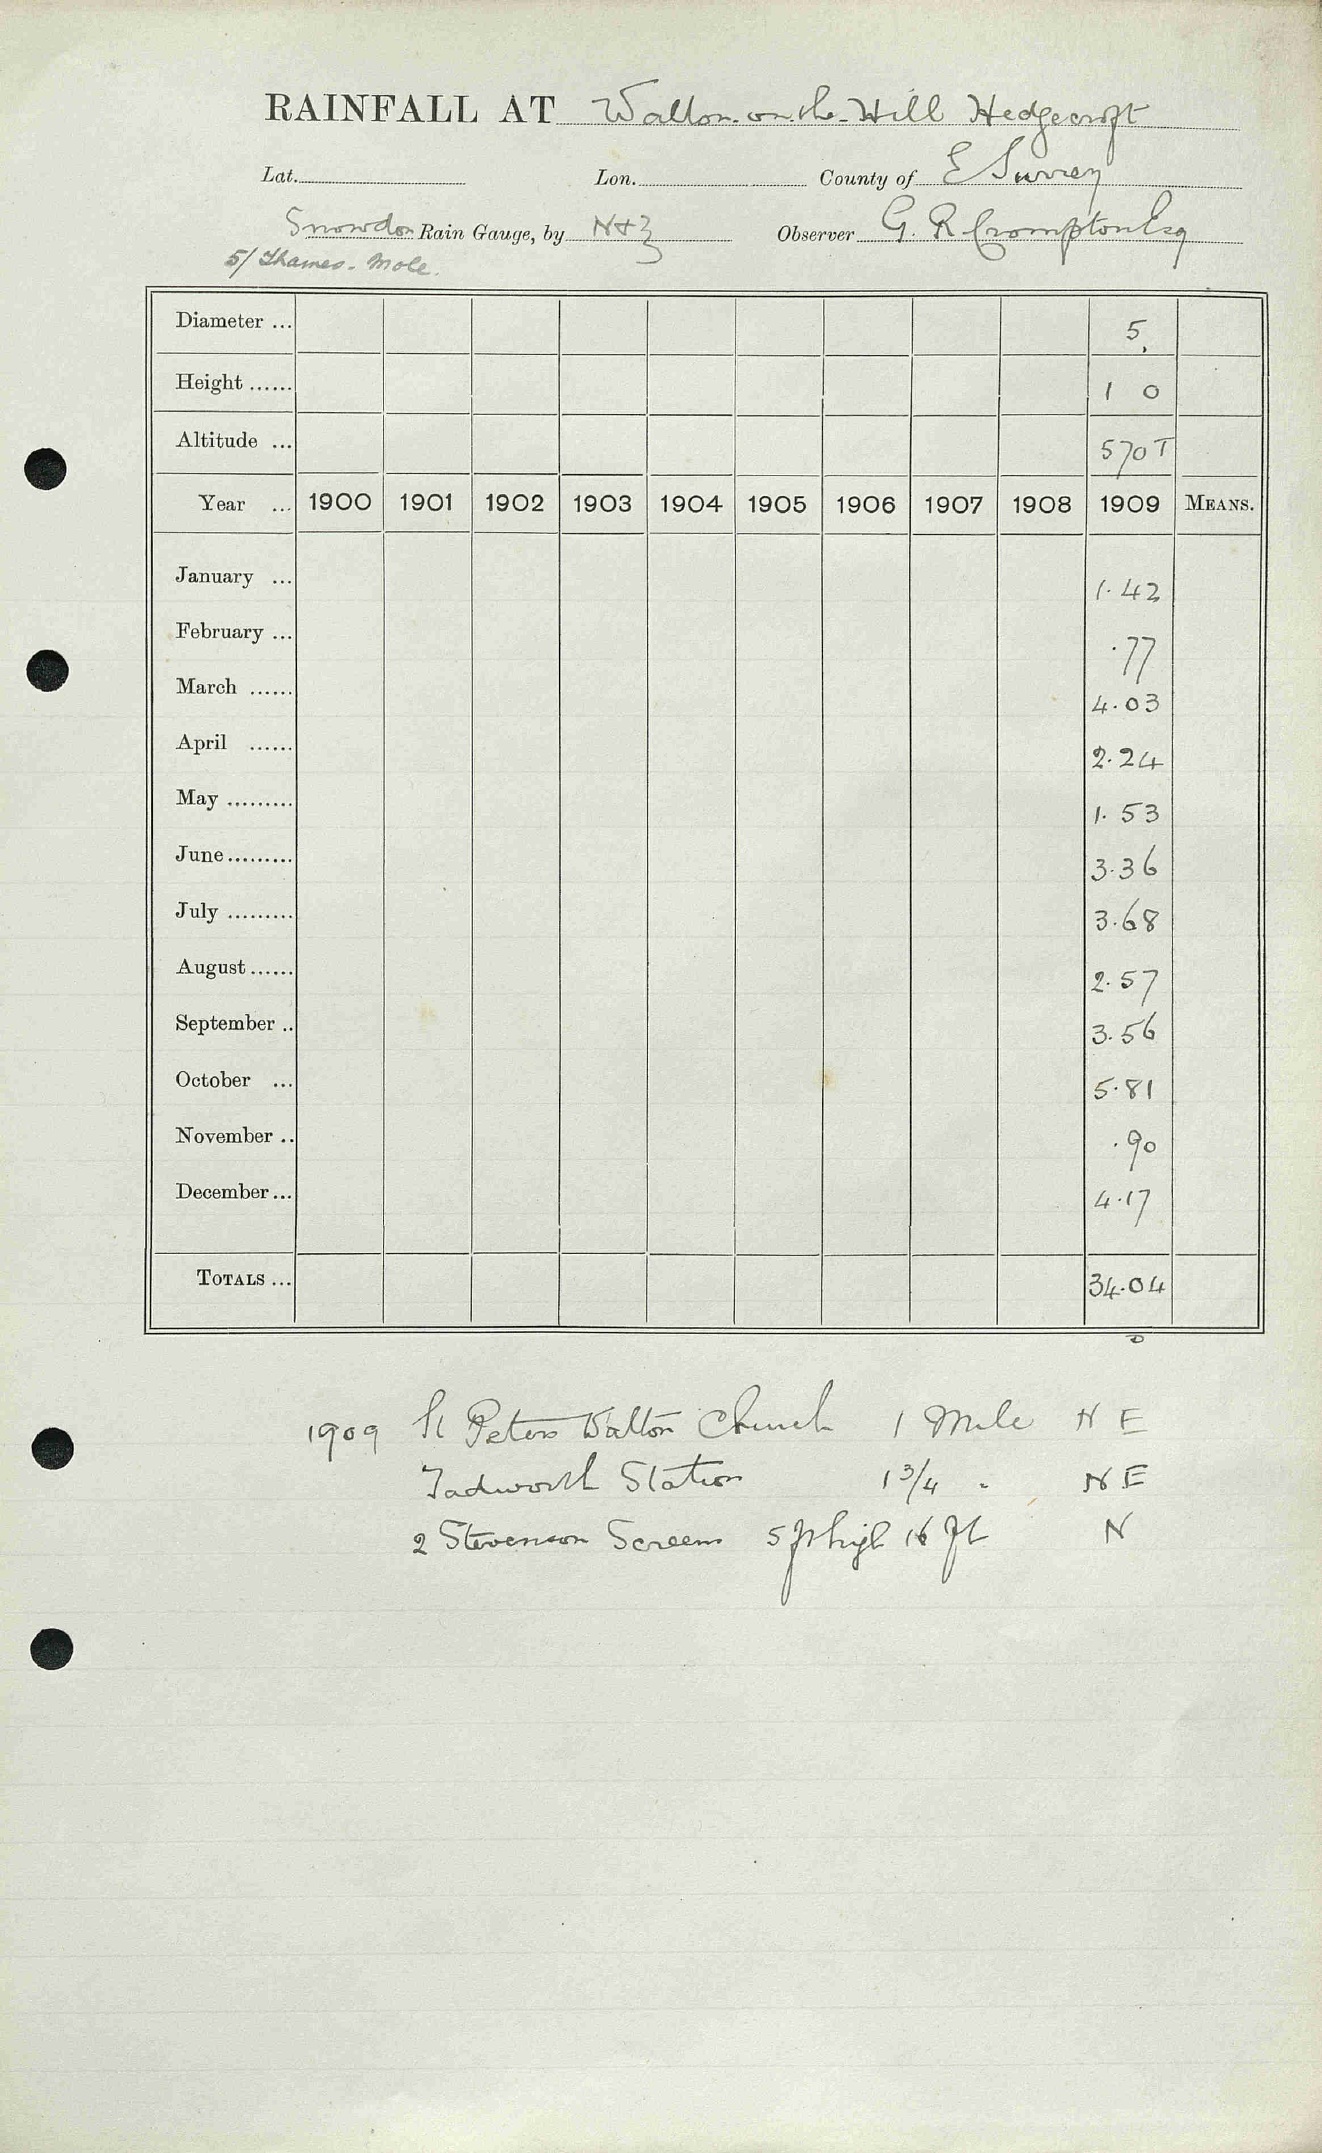 RAINFALL AT Walton-on-the-Hill Hedgecroft
Lat. Lon. County of E Surrey
Snowdon Rain Gauge, by N+Z Observer G. R Crompton Esq
5/ Thames - Mole.
Diameter ... 5
Height ...... 1 0
Altitude ... 570 T
Year ... 1900 1901 1902 1903 1904 1905 1906 1907 1908 1909 MEANS.
January ... 1.42
February ... .77
March ...... 4.03
April ...... 2.24
May ......... 1.53
June ......... 3.36
July ......... 3.68
August ...... 2.57
September .. 3.56
October ... 5.81
November .. .90
December ... 4.17
TOTALS ... 34.04
1909 St Peters Walton Church 1 Mile N E
Tadworth Station 1 3/4 " N E
2 Stevenson Screens 5 ft high 16 ft N